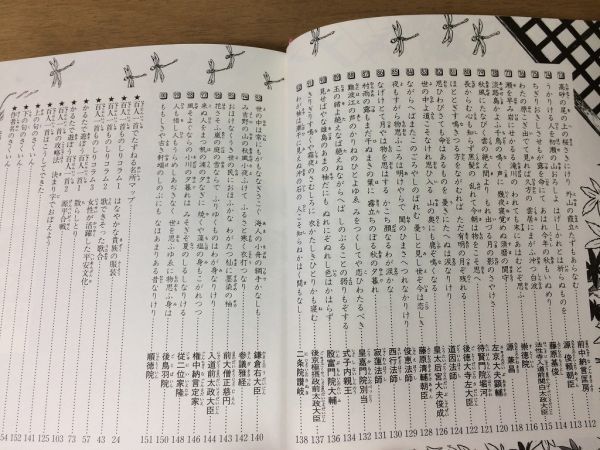 高砂の尾の上の桜さきにけり 外山の霞立たずもあらなむ 前中納言匡房 112
うかりける人をはつせの山おろしよ はげしかれとは祈らぬものを 源俊頼朝臣 113
ちぎりおきしさせもが露を命にて あはれ今年の秋もいぬめり 藤原基俊 114
わたの原こぎ出でて見れば久方の 雲ゐにまがふ沖つ白波 法性寺入道前関白太政大臣 115
瀬を早み岩にせかるる滝川の われても末に逢はむとぞ思ふ 崇徳院 116
淡路島かよふ千鳥の鳴く声に 幾夜寝ざめぬ須磨の関守 源兼昌
秋風にたなびく雲の絶え間より もれ出づる月の影のさやけさ 左京大夫顕輔
長からむ心も知らず黒髪の 乱れて今朝は物をこそ思へ 待賢門院堀河
ほととぎす鳴きつる方をながむれば ただ有明の月ぞ残れる 後徳大寺左大臣
思ひわびさても命はあるものを 憂きにたへぬは涙なりけり 道因法師
世の中よ道こそなけれ思ひ入る 山の奥にも鹿ぞ鳴くなる 皇太后宮大夫俊成
ながらへばまたこのごろやしのばれむ 憂しと見し世ぞ今は恋しき 藤原清輔朝臣
夜もすがら物思ふころは明けやらで 閨のひまさへつれなかりけり 俊恵法師
なげけとて月やは物を思はする かこち顔なるわが涙かな 西行法師
村雨の露もまだ干ぬまきの葉に 霧立ちのぼる秋の夕暮れ 寂蓮法師
難波江の蘆のかりねのひとよゆゑ みをつくしてや恋ひわたるべき 皇嘉門院別当
玉の緒よ絶えなば絶えねながらへば しのぶることの弱りもぞする 式子内親王
見せばやな雄島のあまの袖だにも ぬれにぞぬれし色はかはらず 殷富門院大輔 136
きりぎりす鳴くや霜夜のさむしろに 衣かたしきひとりかも寝む 後京極摂政前太政大臣 137
わが袖は潮干に見えぬ沖の石の 人こそ知らねかはく間もなし 二条院讃岐 138
世の中は常にもがもななぎさこぐ 海人の小舟の綱手かなしも 鎌倉右大臣 140
み吉野の山の秋風小夜ふけて ふるさと寒く衣打つなり 参議雅経 142
おほけなくうき世の民におほふかな わがたつ杣に墨染の袖 前大僧正慈円 143
花さそふ嵐の庭の雪ならで ふりゆくものはわが身なりけり 入道前太政大臣 144
来ぬ人をまつほの浦の夕なぎに 焼くや藻塩の身もこがれつつ 権中納言定家 146
風そよぐならの小川の夕暮れは みそぎぞ夏のしるしなりける 従二位家隆 148
人もをし人もうらめしあぢきなく 世を思ふゆゑに物思ふ身は 後鳥羽院 150
ももしきや古き軒ばのしのぶにも なほあまりある昔なりけり 順徳院 151
★百人一首でたずねる名所マップ
★百人一首ものしりコラム1 はなやかな貴族の服装 24
★百人一首ものしりコラム2 歌できそった歌合 43
★百人一首ものしりコラム3 女性が活躍した平安文化 57
★かるたで遊ぼう百人一首1 散らしとり 73
★かるたで遊ぼう百人一首2 源平合戦 103
★百人一首の攻略法 決まり字でおぼえよう 125
★百人一首はこうしてできた 141
★上の句のさくいん 152
★下の句のさくいん 154
★作者名のさくいん